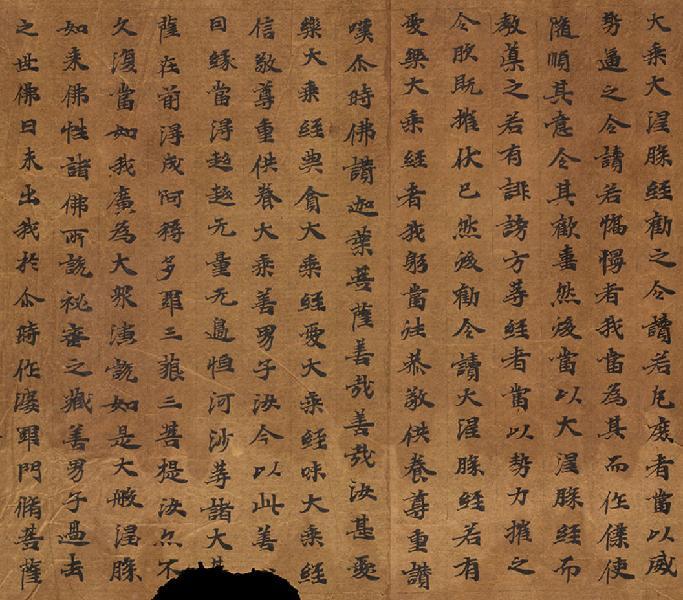 大乘大涅槃經勸之令讀若凡庶者當以威
勢逼之令讀若憍慢者我當為其而作僕使
隨順其意令其歡喜然後當以大涅槃經而
教導之若有誹謗方等經者當以勢力摧之
令既摧伏已然後勸令讀大涅槃經若有
愛樂大乘經者我躬當往恭敬供養尊重讚
嘆尒時佛讚迦葉菩薩善哉善哉汝甚愛
樂大乘經典貪大乘經愛大乘經味大乘經
信敬尊重供養大乘善男子汝今以此善
因緣當得超越无量无邊恒河沙等諸大
薩在前得成阿耨多羅三藐三菩提汝亦不
久復當如我廣為大眾演說如是大般涅槃
如來佛性諸佛所說祕密之藏善男子過去
之世佛日未出我於尒時作婆羅門脩菩薩